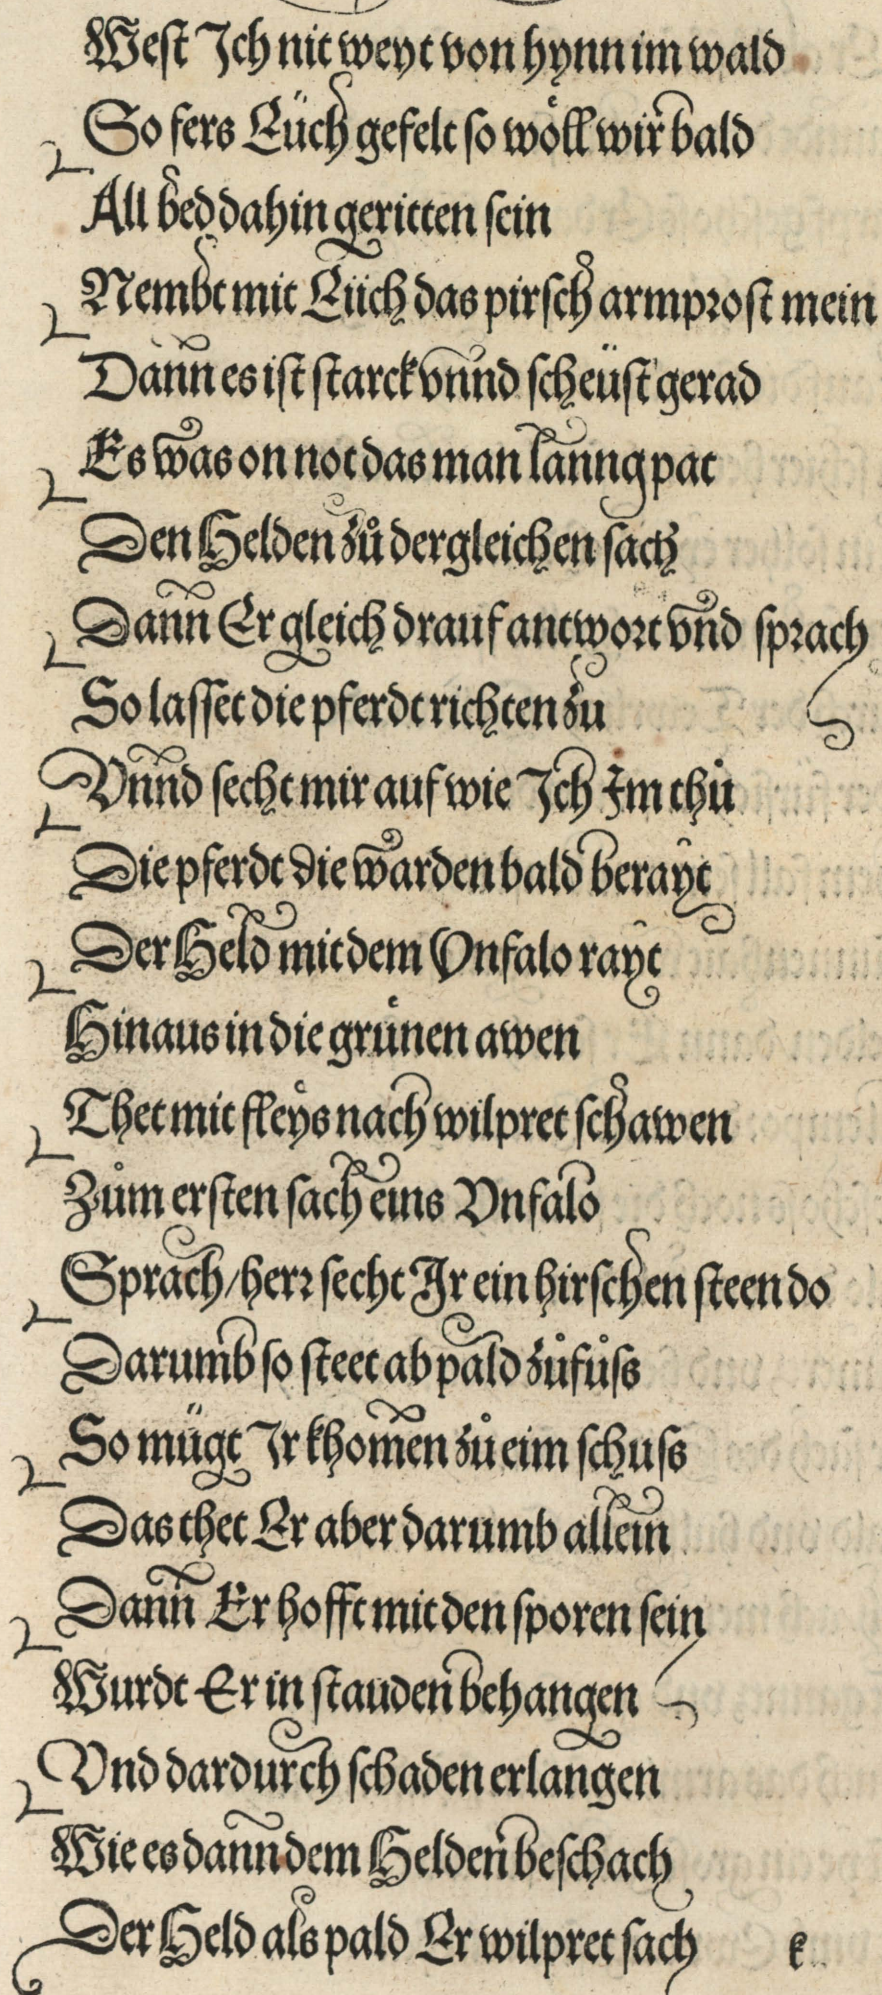 West Ich nit weyt von hynn im wald
So fers Eüch gefelt so wöll wir bald
All bed dahin geritten sein
Nembt mit Eüch das pirsch armprost mein
Dann es ist starck vnnd scheüst gerad
Es was on not das man lanng pat
Den Helden zů dergleichen sach
Dann Er gleich drauf antwort vnd sprach
So lasset die pferdt richten zu
Vnnd secht mir auf wie Ich Im thů
Die pferdt die warden bald berayt
Der Held mit dem Vnfalo rayt
Hinaus in die grünen awen
Thet mit fleys nach wilpret schawen
Zům ersten sach eins Vnfalo
Sprach/herr secht Ir ein hirschen steen do
Darumb so steet ab pald zůfůss
So mügt Ir khomen zů eim schuss
Das thet Er aber darumb allein
Dann Er hofft mit den sporen sein
Wurdt Er in stauden behangen
Vnd dardurch schaden erlangen
Wie es dann dem Helden beschach
Der Held als pald Er wilpret sach k